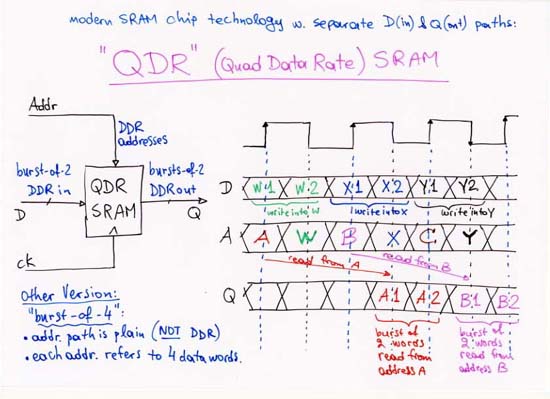 modern SRAM chip technology w. separate D(in) & Q(out) paths:
"QDR" (Quad Data Rate) SRAM
Addr
DDR
addresses
burst-of-2
DDR in
D
QDR
SRAM
bursts-of-2
DDR out
Q
ck
Other Version:
"burst-of-4":
• addr. path is plain (NOT DDR)
• each addr. refers to 4 data words.
D W:1 W:2 X:1 X:2 Y:1 Y:2
write into W write into X write into Y
A A W B X C Y
read from A read from B
Q A:1 A:2 B:1 B:2
burst of
2 words
read from
address A
burst of
2 words
read from
address B